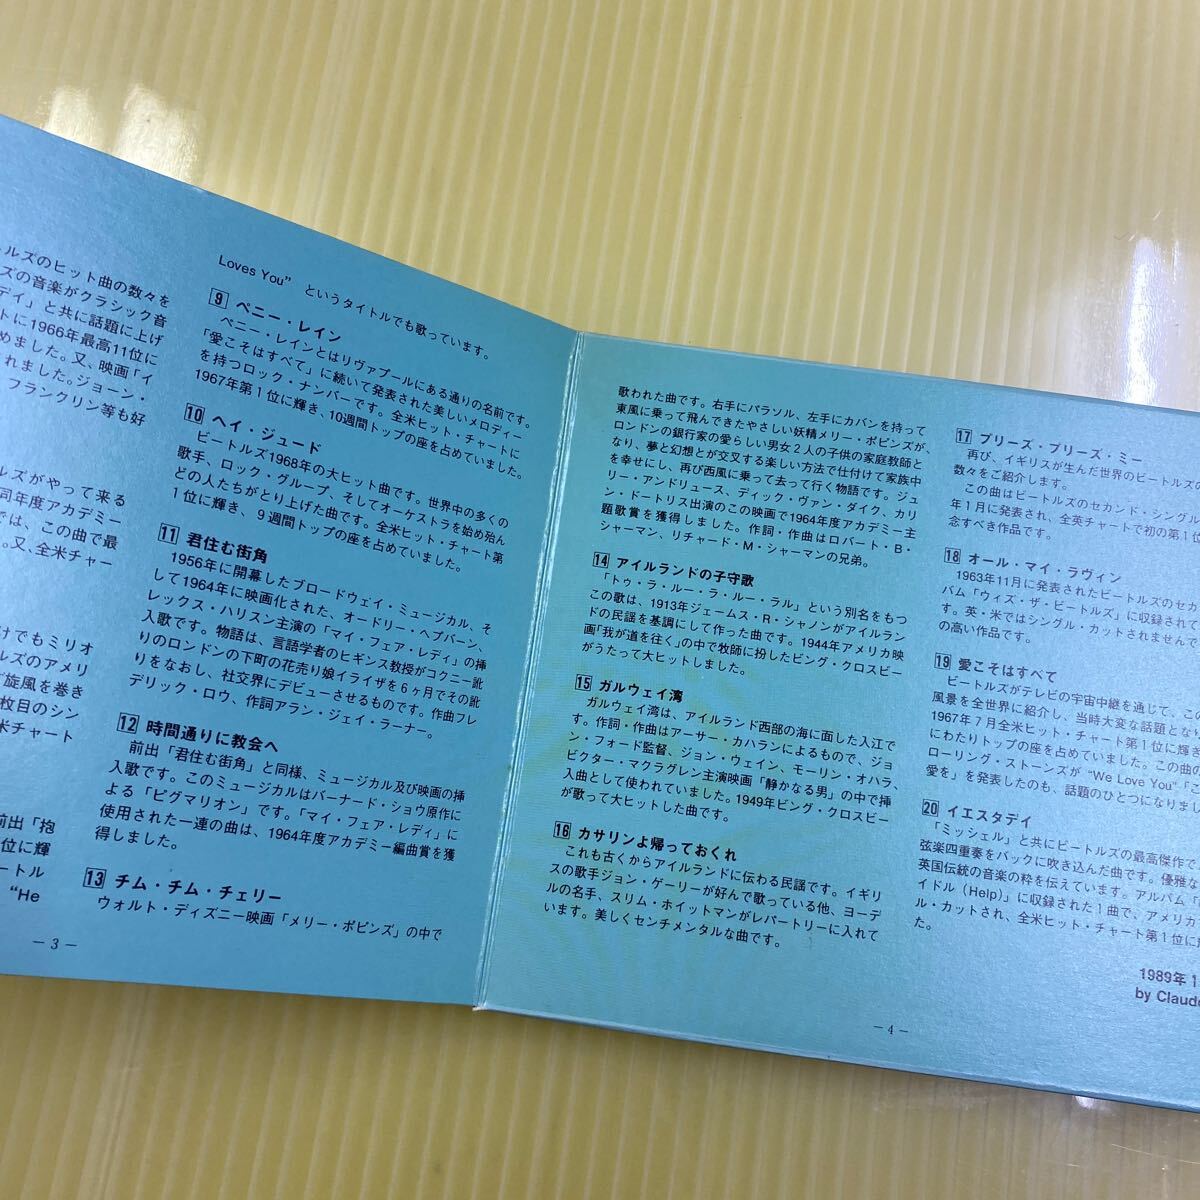 ルズのヒット曲の数々を
ズの音楽がクラシック音
デイ」と共に話題に上げ
トに1966年最高11位に
めました。又、映画「イ
れました。ジョーン・
フランクリン等も好
ルズがやって来る
同年度アカデミー
では、この曲で最
。又、全米チャー
けでもミリオ
ルズのアメリ
旋風を巻き
枚目のシン
米チャート
前出「抱
位に輝
ートル
“He
Loves You” というタイトルでも歌っています。
9 ペニー・レイン
ペニー・レインとはリヴァプールにある通りの名前です。
「愛こそはすべて」に続いて発表された美しいメロディー
を持つロック・ナンバーです。全米ヒット・チャートに
1967年第1位に輝き、10週間トップの座を占めていました。
10 ヘイ・ジュード
ビートルズ1968年の大ヒット曲です。世界中の多くの
歌手、ロック・グループ、そしてオーケストラを始め殆ん
どの人たちがとり上げた曲です。全米ヒット・チャート第
1位に輝き、9週間トップの座を占めていました。
11 君住む街角
1956年に開幕したブロードウェイ・ミュージカル、そ
して1964年に映画化された、オードリー・ヘプバーン、
レックス・ハリスン主演の「マイ・フェア・レディ」の挿
入歌です。物語は、言語学者のヒギンス教授がコクニー訛
りのロンドンの下町の花売り娘イライザを6ヶ月でその訛
りをなおし、社交界にデビューさせるものです。作曲フレ
デリック・ロウ、作詞アラン・ジェイ・ラーナー。
12 時間通りに教会へ
前出「君住む街角」と同様、ミュージカル及び映画の挿
入歌です。このミュージカルはバーナード・ショウ原作に
よる「ピグマリオン」です。「マイ・フェア・レディ」に
使用された一連の曲は、1964年度アカデミー編曲賞を獲
得しました。
13 チム・チム・チェリー
ウォルト・ディズニー映画「メリー・ポピンズ」の中で
－3－
歌われた曲です。右手にパラソル、左手にカバンを持って
東風に乗って飛んできたやさしい妖精メリー・ポピンズが、
ロンドンの銀行家の愛らしい男女2人の子供の家庭教師と
なり、夢と幻想とが交叉する楽しい方法で仕付けて家族中
を幸せにし、再び西風に乗って去って行く物語です。ジュ
リー・アンドリュース、ディック・ヴァン・ダイク、カリ
ン・ドートリス出演のこの映画で1964年度アカデミー主
題歌賞を獲得しました。作詞・作曲はロバート・B・
シャーマン、リチャード・M・シャーマンの兄弟。
14 アイルランドの子守歌
「トゥ・ラ・ルー・ラ・ルー・ラル」という別名をもつ
この歌は、1913年ジェームス・R・シャノンがアイルラン
ドの民謡を基調にして作った曲です。1944年アメリカ映
画「我が道を往く」の中で牧師に扮したビング・クロスビー
がうたって大ヒットしました。
15 ガルウェイ湾
ガルウェイ湾は、アイルランド西部の海に面した入江で
す。作詞・作曲はアーサー・カハランによるもので、ジョ
ン・フォード監督、ジョン・ウェイン、モーリン・オハラ、
ビクター・マクラグレン主演映画「静かなる男」の中で挿
入曲として使われていました。1949年ビング・クロスビー
が歌って大ヒットした曲です。
16 カサリンよ帰っておくれ
これも古くからアイルランドに伝わる民謡です。イギリ
スの歌手ジョン・ゲーリーが好んで歌っている他、ヨーデ
ルの名手、スリム・ホイットマンがレパートリーに入れて
います。美しくセンチメンタルな曲です。
17 プリーズ・プリーズ・ミー
再び、イギリスが生んだ世界のビートルズの
数々をご紹介します。
この曲はビートルズのセカンド・シングル
年1月に発表され、全英チャートで初の第1位
念すべき作品です。
18 オール・マイ・ラヴィン
1963年11月に発表されたビートルズのセカ
バム「ウィズ・ザ・ビートルズ」に収録されて
す。英・米ではシングル・カットされませんで
の高い作品です。
19 愛こそはすべて
ビートルズがテレビの宇宙中継を通じて、こ
風景を全世界に紹介し、当時大変な話題となり
1967年7月全米ヒット・チャート第1位に輝き
にわたりトップの座を占めていました。この曲の
ローリング・ストーンズが “We Love You”「こ
愛を」を発表したのも、話題のひとつになりま
20 イエスタデイ
「ミッシェル」と共にビートルズの最高傑作で
弦楽四重奏をバックに吹き込んだ曲です。優雅な
英国伝統の音楽の粋を伝えています。アルバム「
イドル（Help）」に収録された1曲で、アメリカ
ル・カットされ、全米ヒット・チャート第1位に
た。
1989年 1
by Claude
－4－